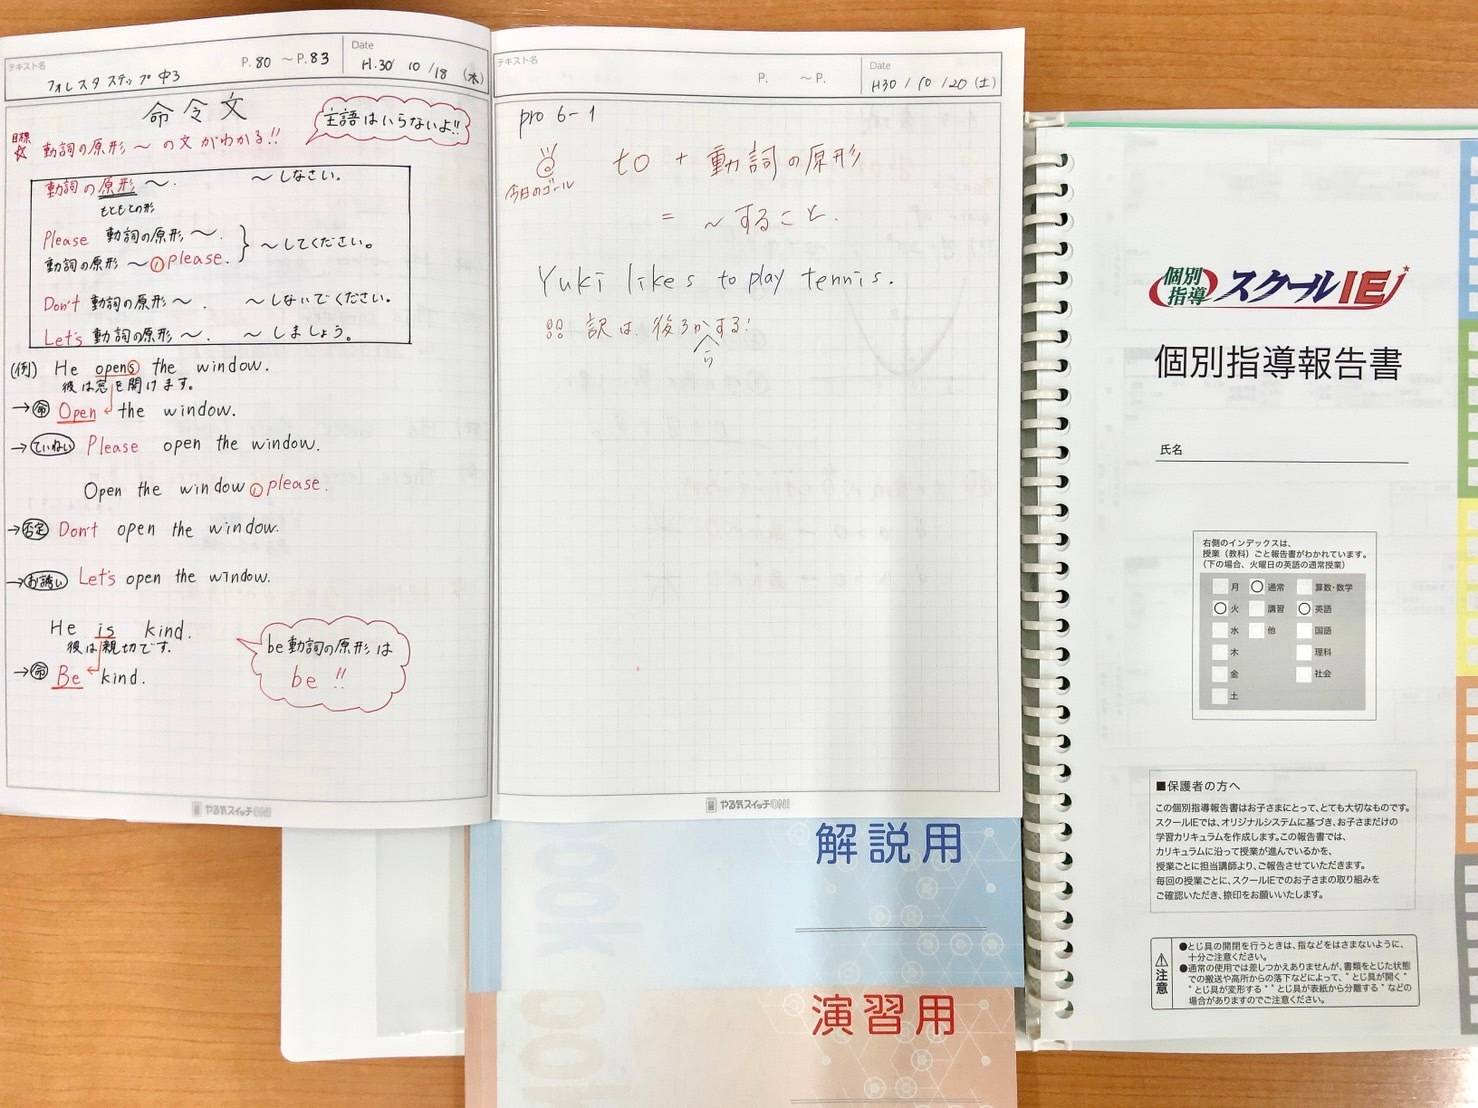 テキスト名
フォレスタ ステップ 中3
P. 80 ~ P. 83
Date
H.30 10 /18 (木)
命令文
主語はいらないよ!!
目標
☆ 動詞の原形 〜 の文がわかる!!
動詞の原形 〜. 〜しなさい。
もともとの形
Please 動詞の原形 〜.
動詞の原形 〜, please.
〜してください。
Don't 動詞の原形 〜. 〜しないでください。
Let's 動詞の原形 〜. 〜しましょう。
(例) He opens the window.
彼は窓を開けます。
→ 命 Open the window.
→ ていねい Please open the window.
Open the window, please.
→ 否定 Don't open the window.
→ お誘い Let's open the window.
He is kind.
彼は親切です.
→ 命 Be kind.
be動詞の原形は
be !!
やる気スイッチONE!
テキスト名
P. ~ P.
Date
H30 / 10 /20 (土)
pro 6-1
今日のゴール
to + 動詞の原形
= 〜すること.
Yuki likes to play tennis.
訳は、後ろかする!
ら
やる気スイッチONE!
解説用
演習用
個別指導 スクールIE
個別指導報告書
氏名
右側のインデックスは、
授業（教科）ごと報告書がわかれています。
（下の場合、火曜日の英語の通常授業）
月 ○ 通常 算数・数学
○ 火 講習 ○ 英語
水 他 国語
木 理科
金 社会
土
■保護者の方へ
この個別指導報告書はお子さまにとって、とても大切なものです。
スクールIEでは、オリジナルシステムに基づき、お子さまだけの
学習カリキュラムを作成します。この報告書では、
カリキュラムに沿って授業が進んでいるかを、
授業ごとに担当講師より、ご報告させていただきます。
毎回の授業ごとに、スクールIEでのお子さまの取り組みを
ご確認いただき、捺印をお願いいたします。
注意
●とじ具の開閉を行うときは、指などをはさまないように、
十分ご注意ください。
●通常の使用では差しつかえありませんが、書類をとじた状態
での搬送や高所からの落下などによって、"とじ具が開く"
"とじ具が変形する""とじ具が表紙から分離する"などの
場合がありますのでご注意ください。